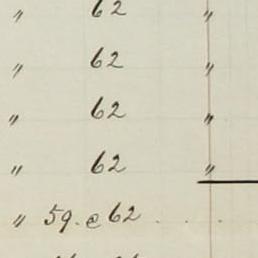 " 62 "
" 62 "
" 62 "
" 62 "
" 59. @ 62 . . .